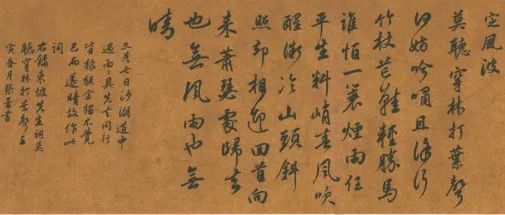 定風波
莫聽穿林打葉聲
何妨吟嘯且徐行
竹杖芒鞋輕勝馬
誰怕一蓑煙雨任
平生料峭春風吹
醒微冷山頭斜
照卻相迎回首向
来蕭瑟處歸去
也無風雨也無
晴
三月七日沙湖道中
遇雨雨具先去同行
皆狼狽余獨不覺
已而遂晴故作此
詞
右錄東坡先生詞莫
聽穿林打葉聲壬
寅春月張書